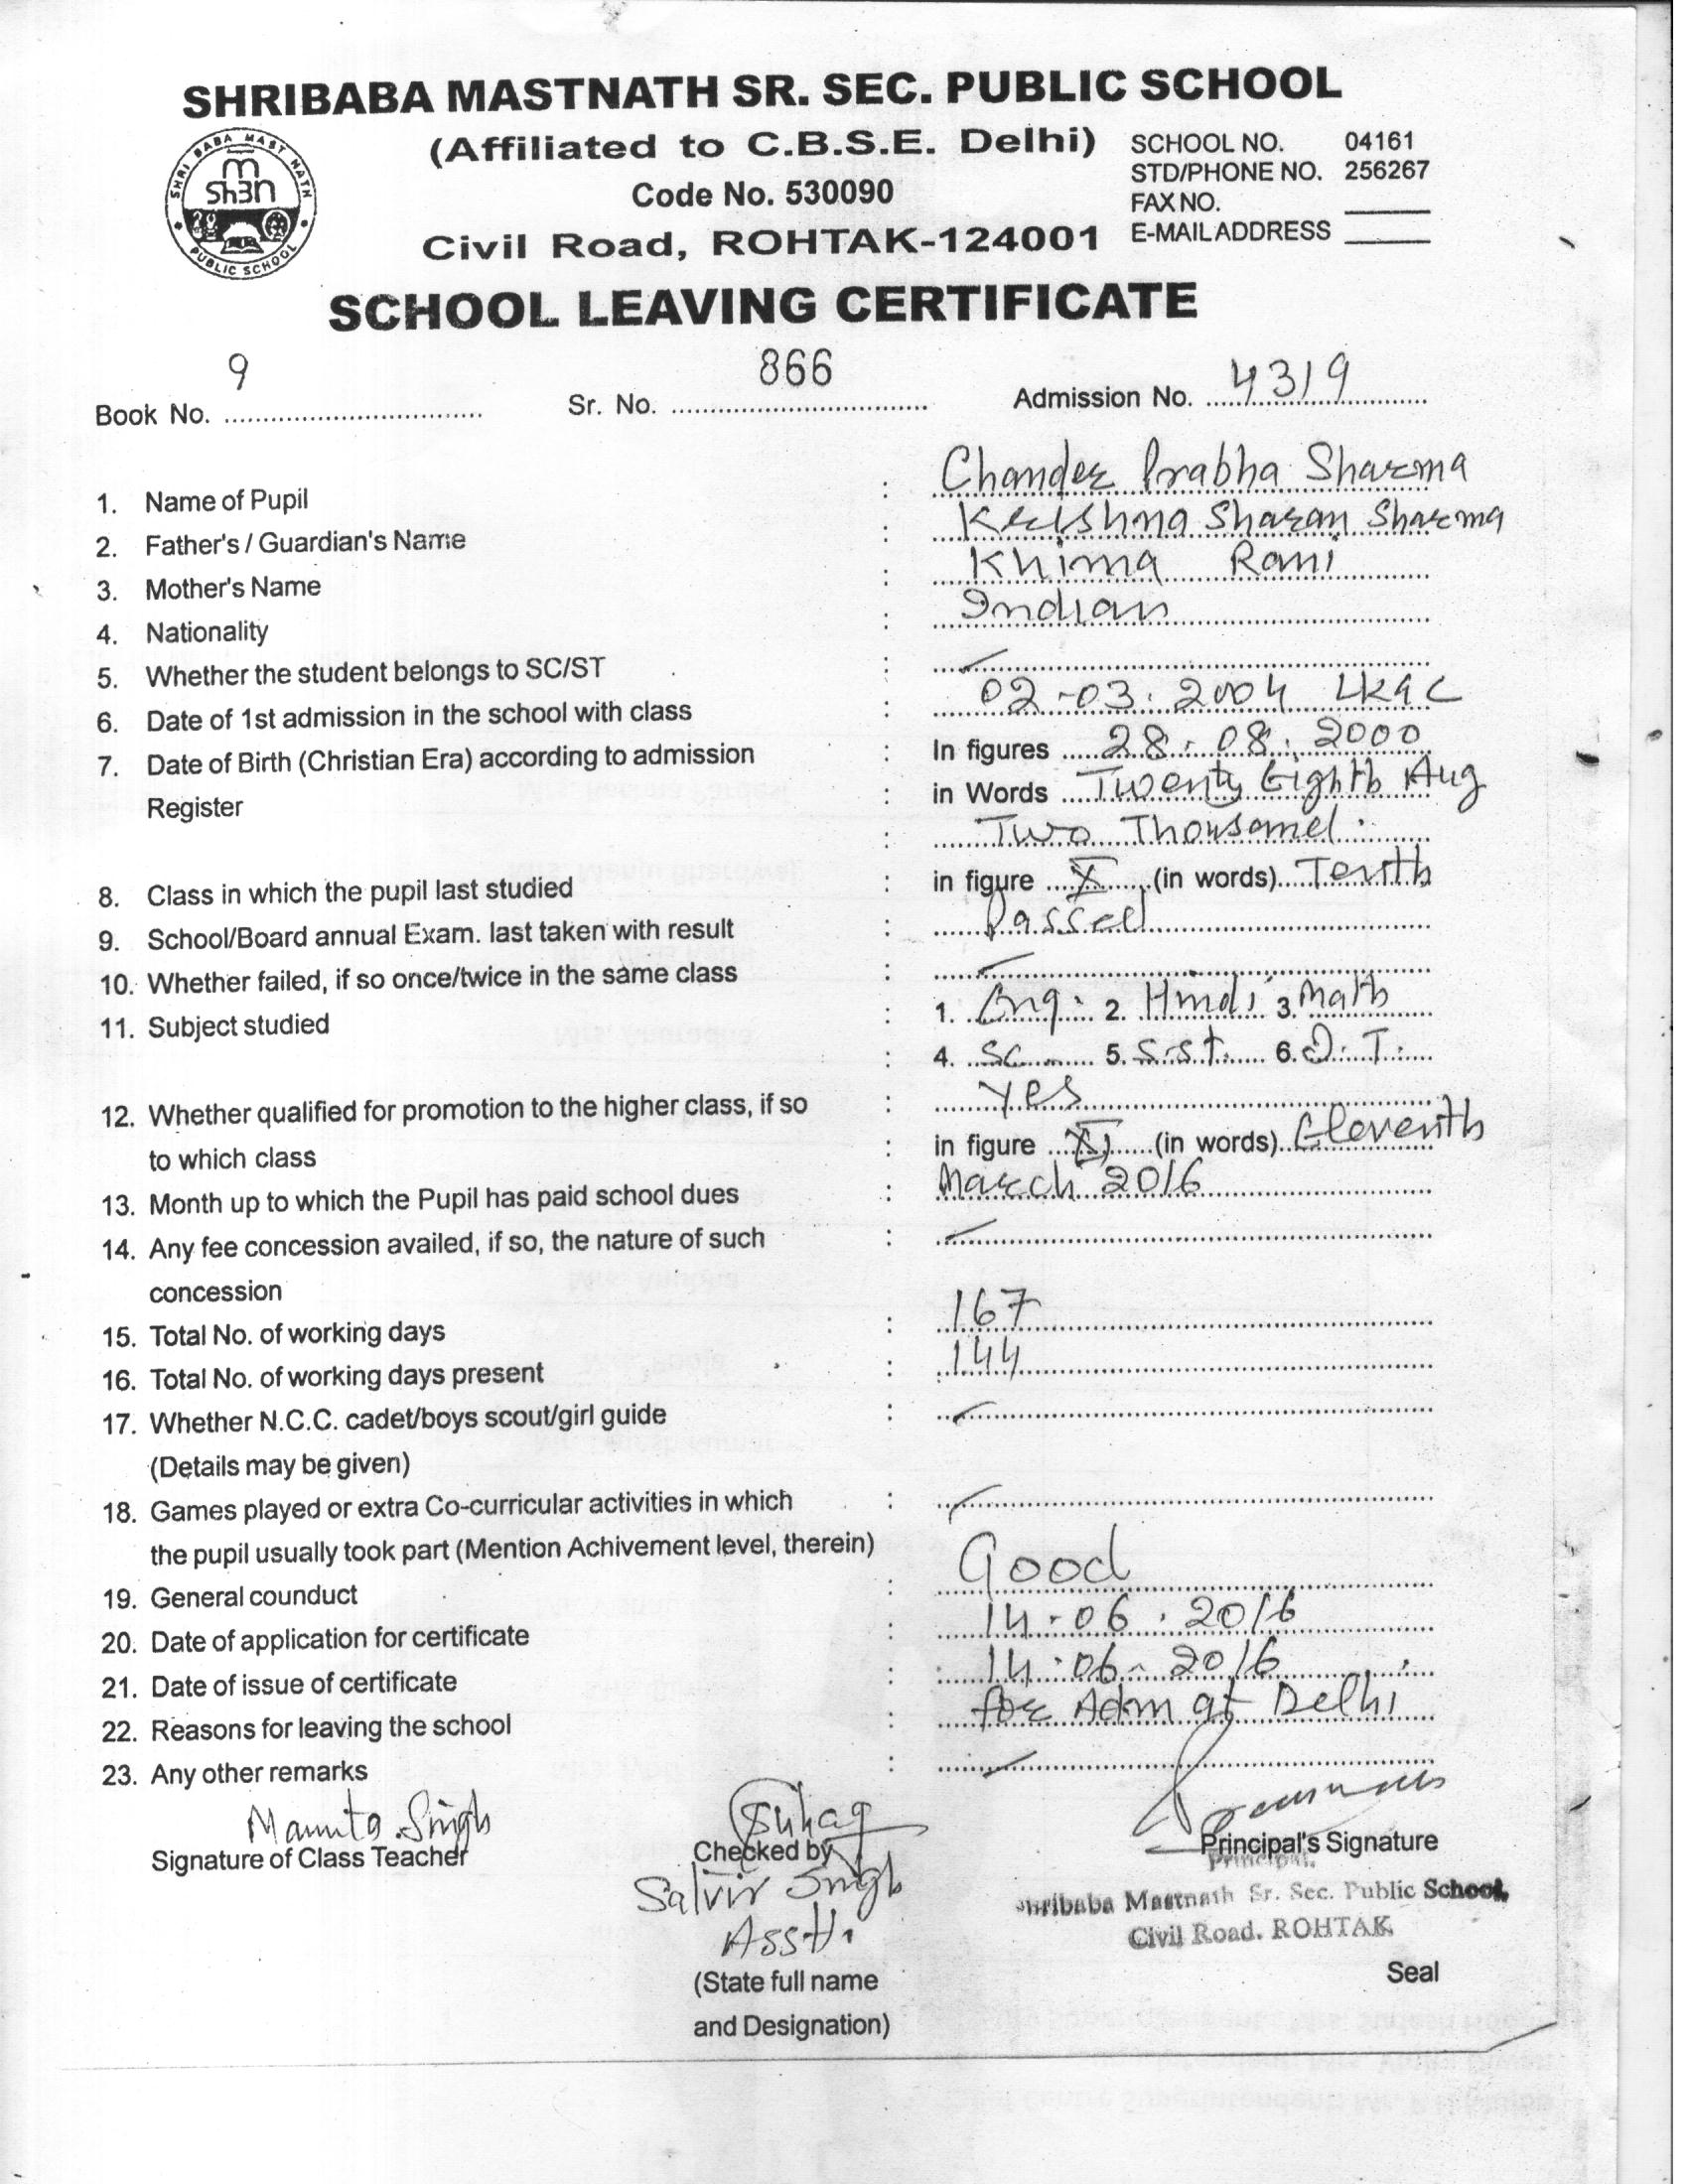 SHRIBABA MASTNATH SR. SEC. PUBLIC SCHOOL
(Affiliated to C.B.S.E. Delhi)
Code No. 530090
Civil Road, ROHTAK-124001
SCHOOL NO. 04161
STD/PHONE NO. 256267
FAX NO.
E-MAIL ADDRESS
SHRI BABA MAST NATH
PUBLIC SCHOOL
SCHOOL LEAVING CERTIFICATE
Book No. 9 Sr. No. 866 Admission No. 4319
1. Name of Pupil : Chander Prabha Sharma
2. Father's / Guardian's Name : Krishna Sharan Sharma
3. Mother's Name : Khima Rani
4. Nationality : Indian
5. Whether the student belongs to SC/ST :
6. Date of 1st admission in the school with class : 02-03.2004 LKG C
7. Date of Birth (Christian Era) according to admission : In figures 28.08.2000
Register : in Words Twenty Eighth Aug
: Two Thousand.
8. Class in which the pupil last studied : in figure X (in words) Tenth
9. School/Board annual Exam. last taken with result : Passed
10. Whether failed, if so once/twice in the same class :
11. Subject studied : 1. Eng. 2. Hindi 3. Math
: 4. Sc 5. S.st. 6. T.
12. Whether qualified for promotion to the higher class, if so : Yes
to which class : in figure XI (in words) Eleventh
13. Month up to which the Pupil has paid school dues : March 2016
14. Any fee concession availed, if so, the nature of such :
concession
15. Total No. of working days : 167
16. Total No. of working days present : 144
17. Whether N.C.C. cadet/boys scout/girl guide :
(Details may be given)
18. Games played or extra Co-curricular activities in which :
the pupil usually took part (Mention Achivement level, therein)
19. General counduct : Good
20. Date of application for certificate : 14.06.2016
21. Date of issue of certificate : 14.06-2016
22. Reasons for leaving the school : for Adm at Delhi
23. Any other remarks :
Mamta Singh
Signature of Class Teacher
Checked by
Singh
(State full name
and Designation)
Principal's Signature
Principal,
Shribaba Mastnath Sr. Sec. Public School,
Civil Road, ROHTAK
Seal